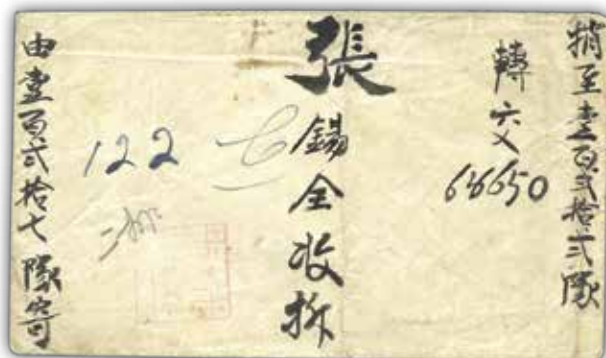 捎至壹百弍拾弍隊
轉交
66650
張錫全收拆
122
由壹百弍拾七隊寄